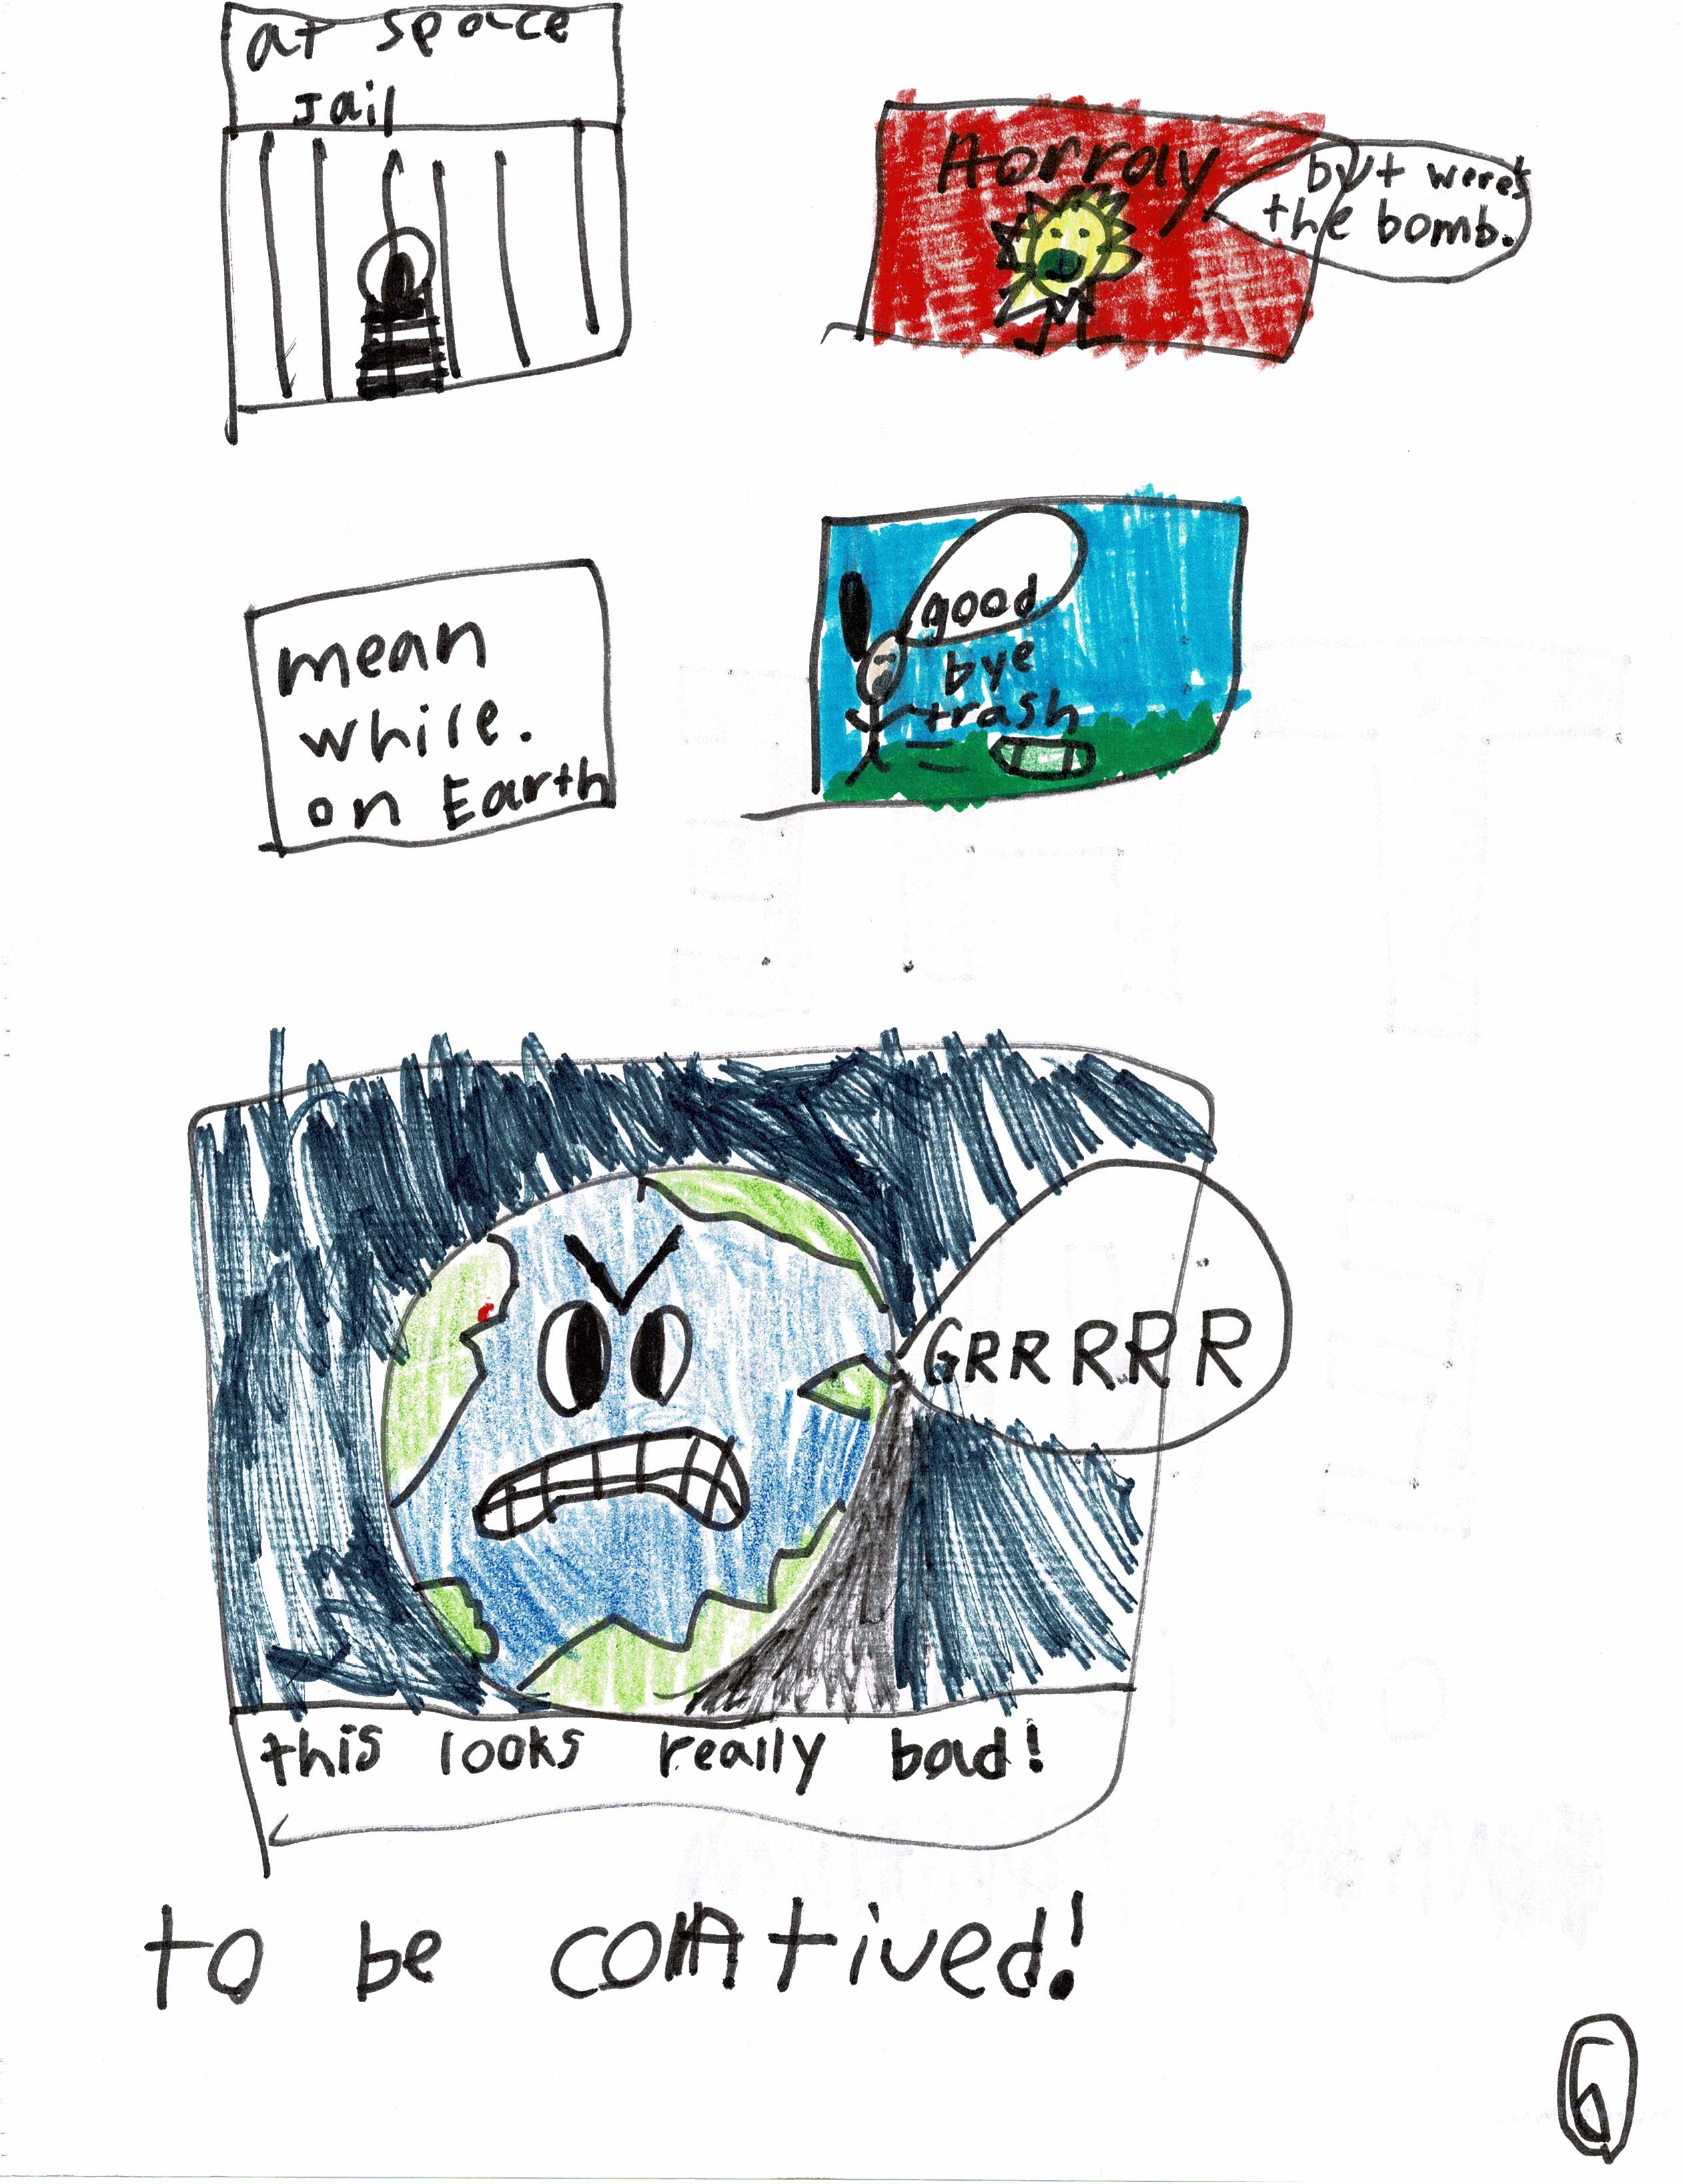 at space
Jail
Horray
byt were's
the bomb.
mean
while.
on Earth
good
bye
trash
GRRRRR
this looks really bad!
to be contived!
6